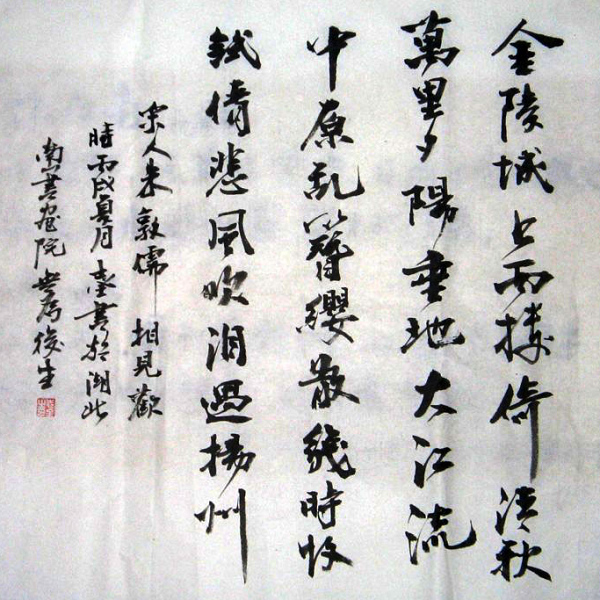 金陵城上西樓倚清秋
萬里夕陽垂地大江流
中原乱簪纓散幾時收
試倩悲風吹泪過揚州
宋人朱敦儒 相見歡
時丙戌夏月書於湖北
南書畫院後生